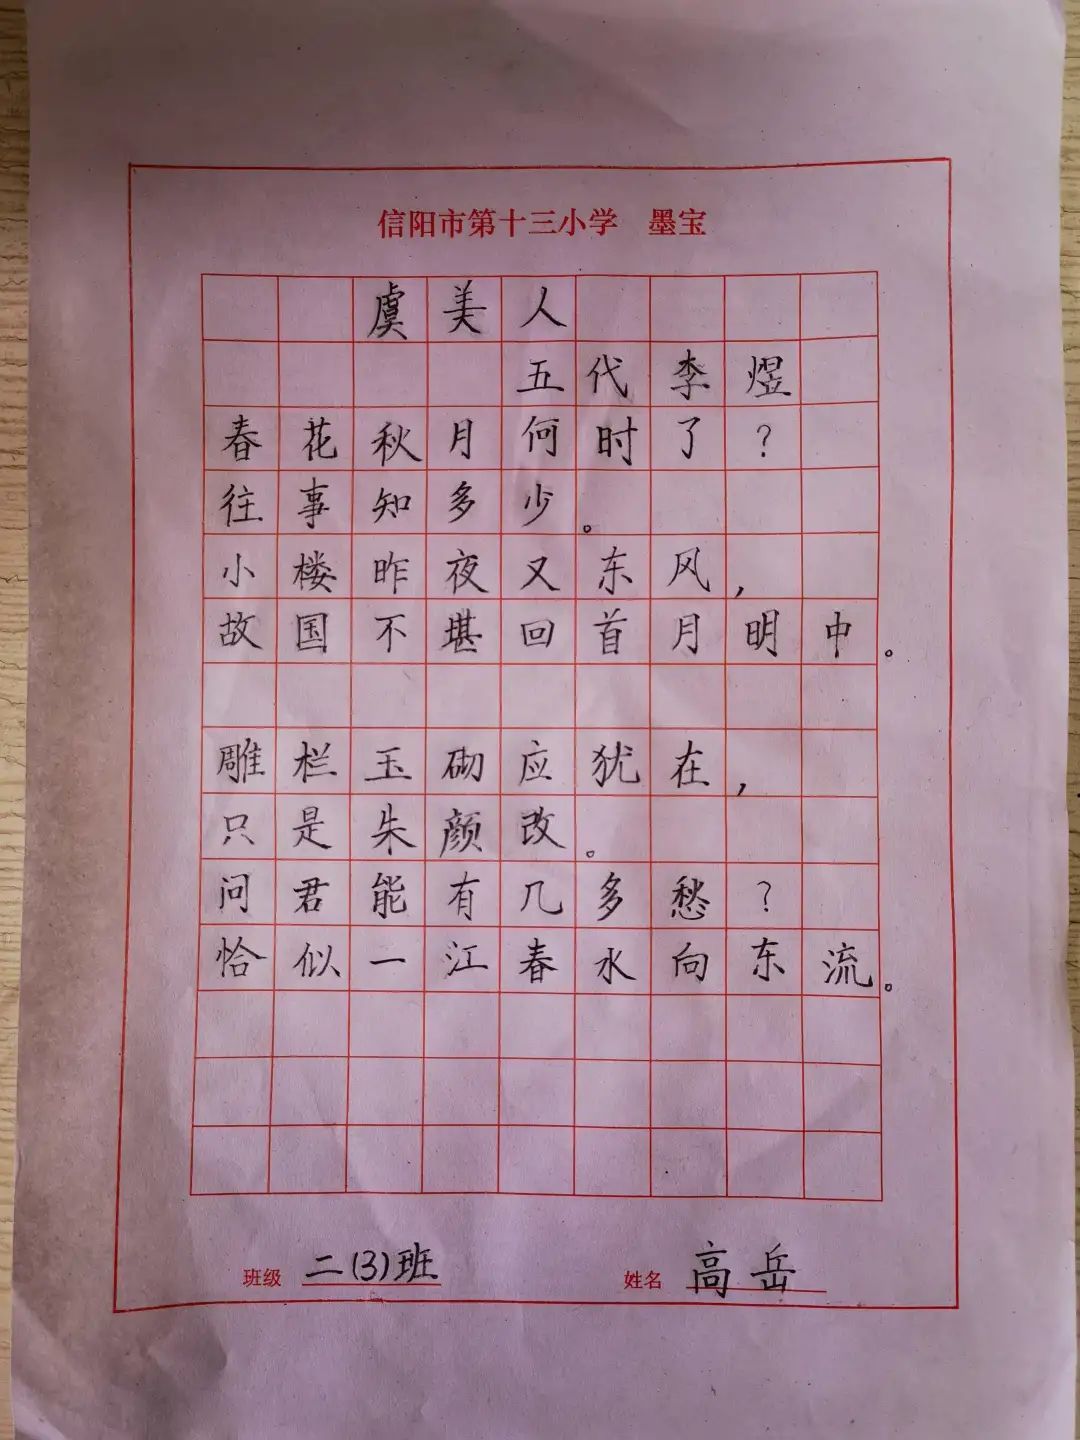 信阳市第十三小学 墨宝
虞美人
五代李煜
春花秋月何时了?
往事知多少。
小楼昨夜又东风,
故国不堪回首月明中。
雕栏玉砌应犹在,
只是朱颜改。
问君能有几多愁?
恰似一江春水向东流。
班级 二(3)班 姓名 高岳